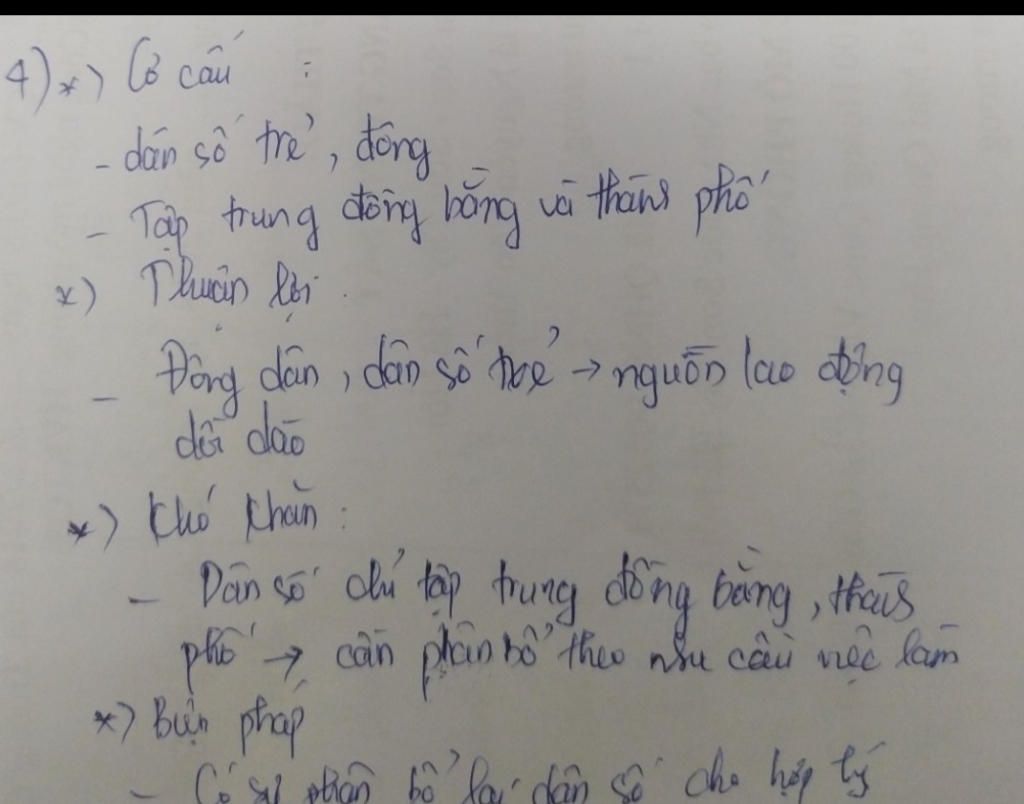 4) *) Cơ cấu :
- dân số trẻ, đông
- Tập trung đồng bằng và thành phố
*) Thuận lợi :
- Đông dân, dân số trẻ → nguồn lao động
dồi dào
*) Khó khăn :
- Dân số chỉ tập trung đồng bằng, thành
phố → cần phân bố theo nhu cầu việc làm
*) Biện pháp
- Có sự phân bố lại dân số cho hợp lý